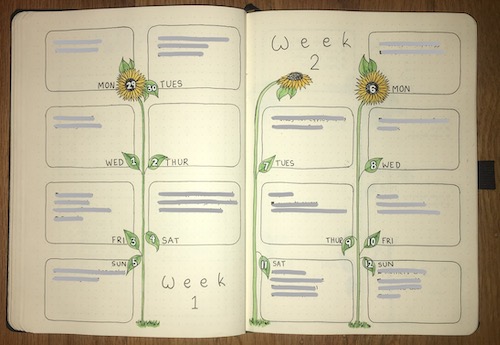 MON 29 30 TUES
WED 1 2 THUR
FRI 3 4 SAT
SUN 5
Week
1
Week
2
6 MON
7 TUES
8 WED
THUR 9
10 FRI
11 SAT
12 SUN